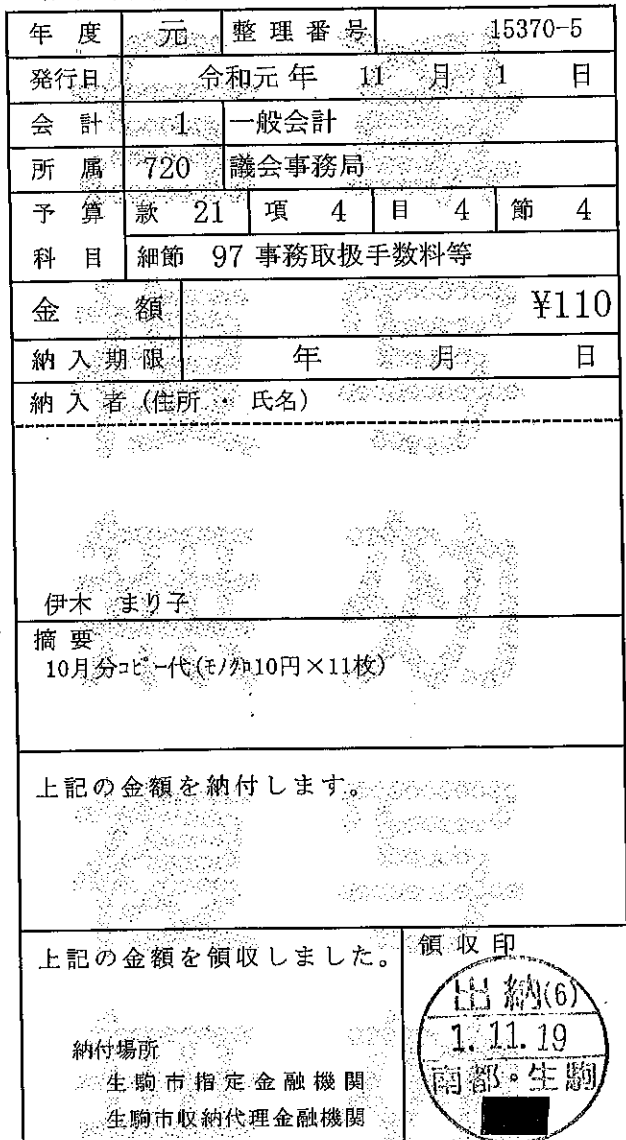 年度 元 整理番号 15370-5
発行日 令和元年 11 月 1 日
会計 1 一般会計
所属 720 議会事務局
予算 款 21 項 4 目 4 節 4
科目 細節 97 事務取扱手数料等
金額 ¥110
納入期限 年 月 日
納入者(住所・氏名)
伊木 まり子
摘要
10月分ｺﾋﾟｰ代(ﾓﾉｸﾛ10円×11枚)
上記の金額を納付します。
上記の金額を領収しました。
領収印
納付場所
生駒市指定金融機関
生駒市収納代理金融機関
出納(6)
1.11.19
南都・生駒